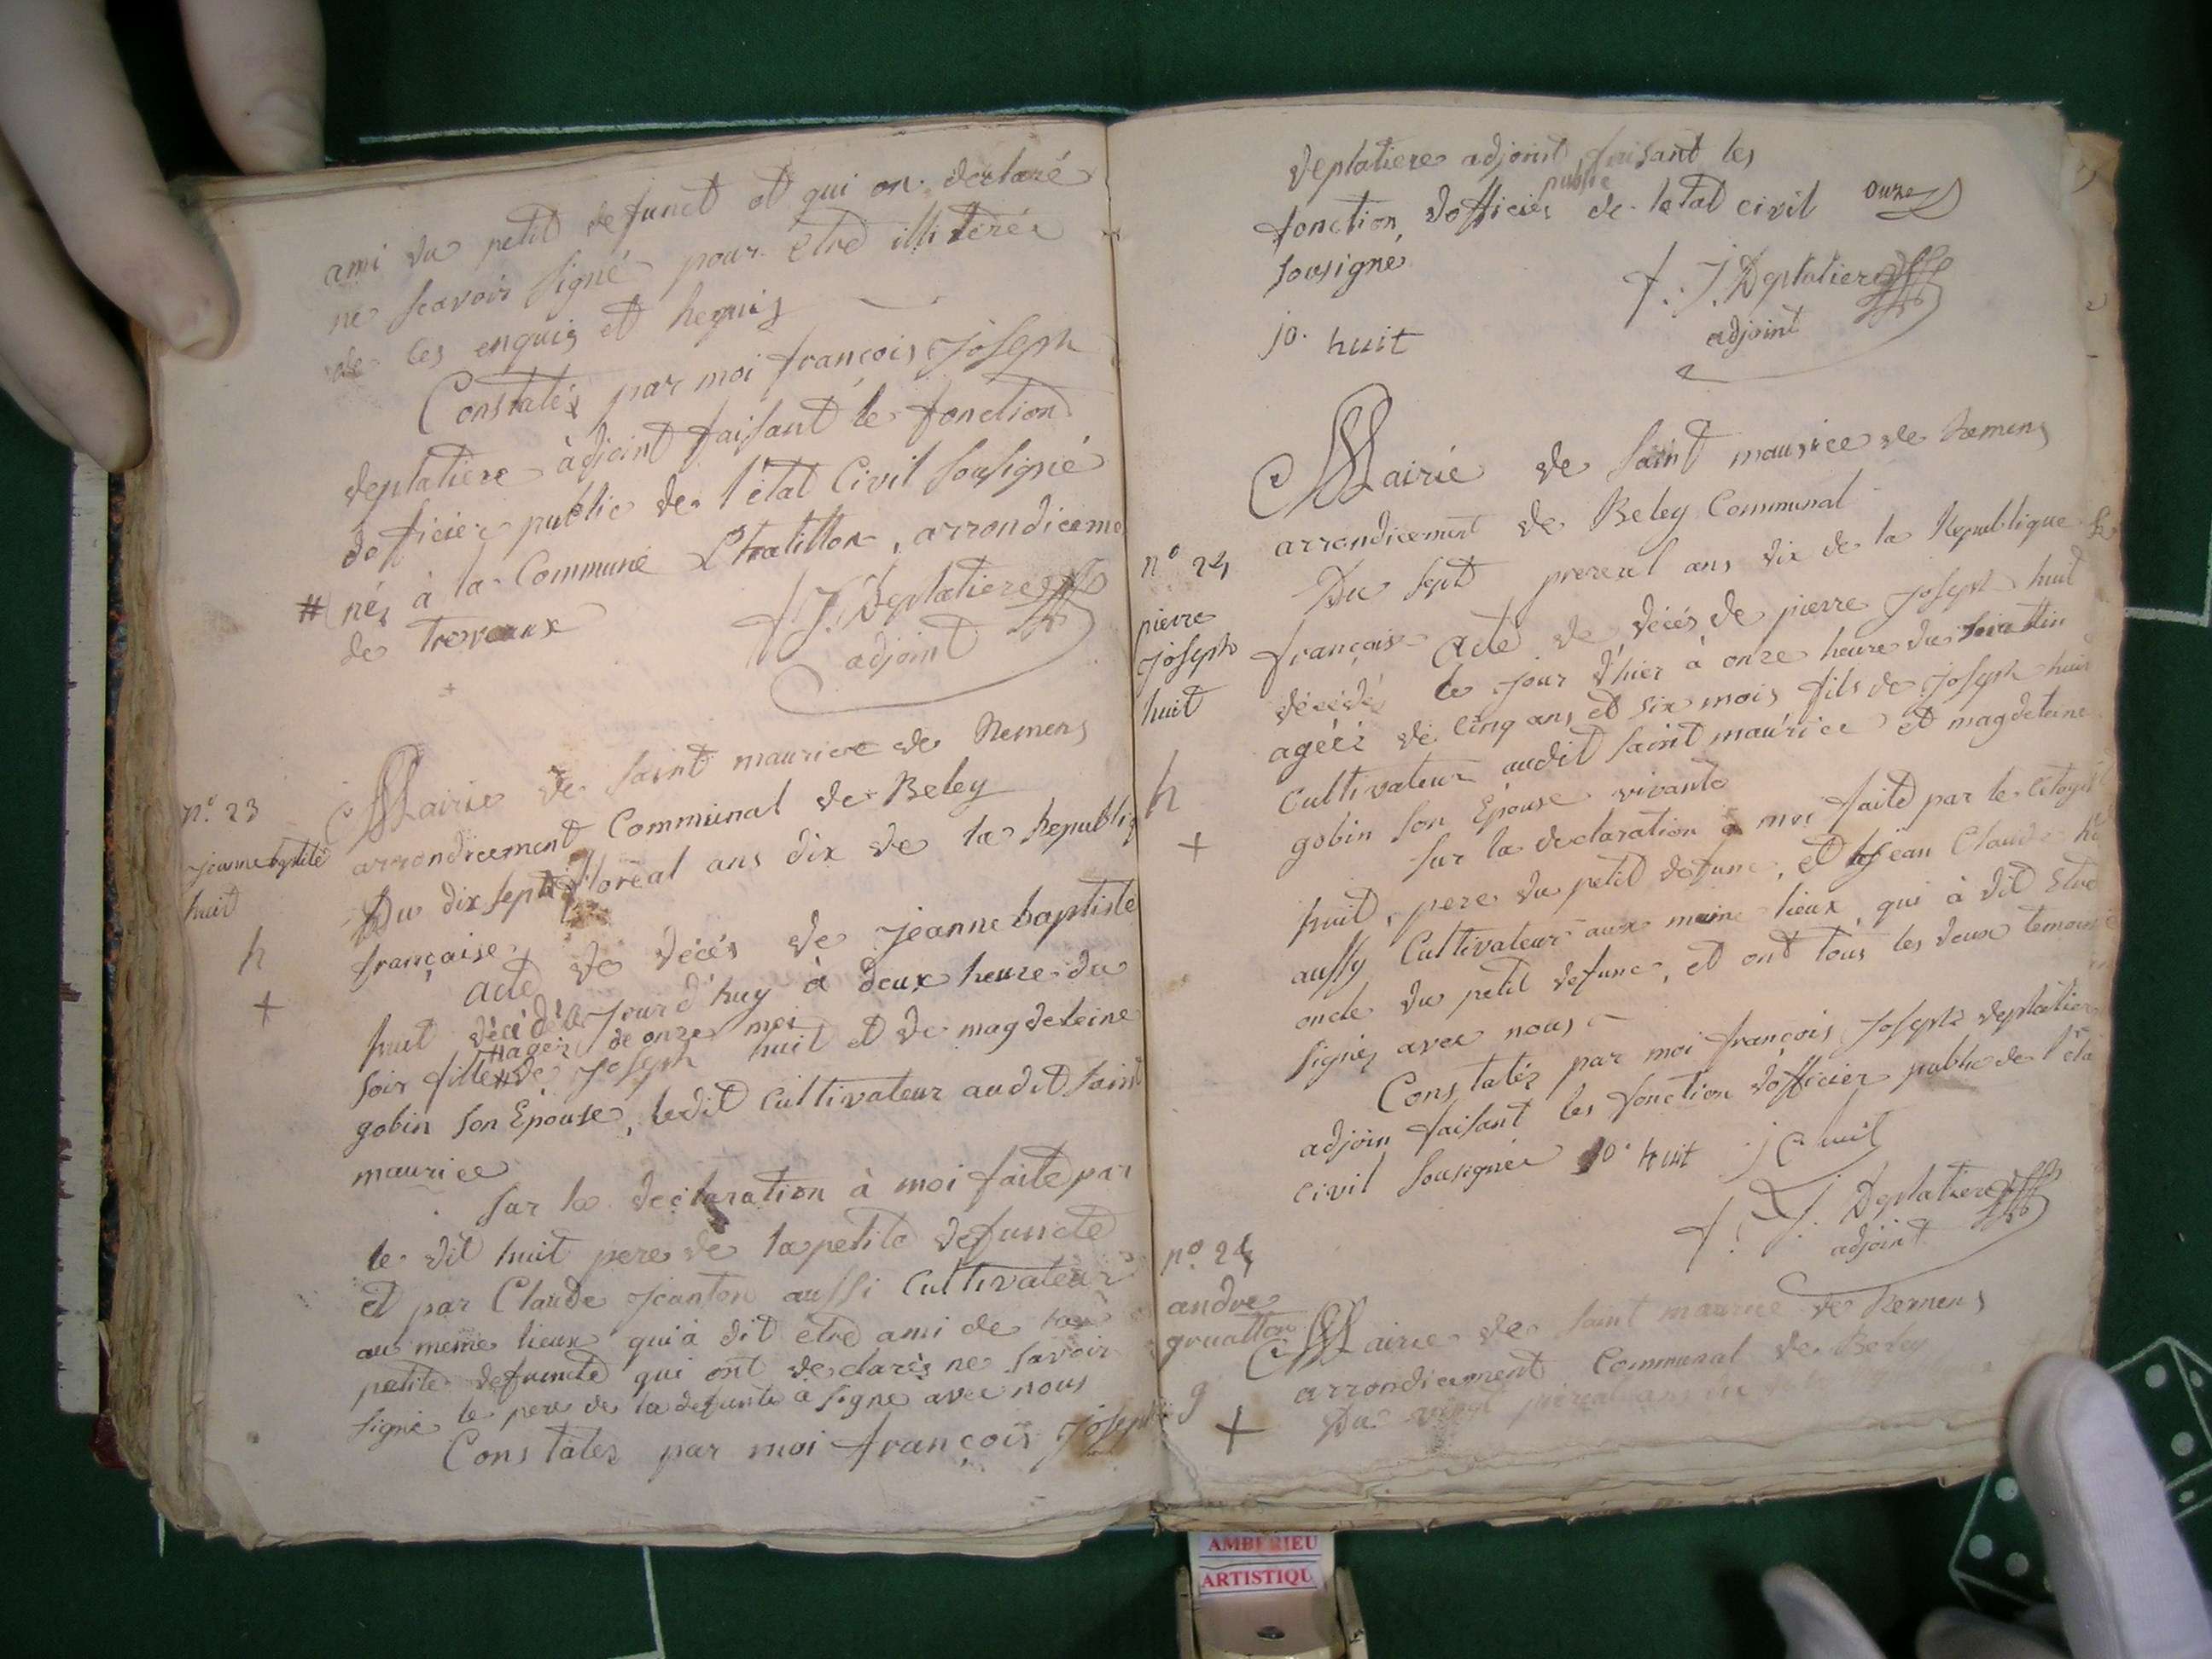 ami du petit defunct et qui on declaré
ne scavoir signé pour etre illiterée
de les enquis et hequis
Constatés par moi françois joseph
deplatiere àdjoint faisant le fonction
dofficier public de l'état Civil sousigné
# nés à la Commune Chatillon, arrondiceme
de Trevoux
f J. Deplatiere
adjoint
n.º 23
jeanne baptiste
huit
h
+
Mairie de saint maurice de Remens
arrondicement Communal de Beley
Du dix sept floreal ans dix de la Republiq
française,
acte de décés de jeanne baptiste
huit décédée jourd'huy à deux heure du
# agée de onze moi
soir fille # de joseph huit et de magdeleine
gobin son Epouse, ledit cultivateur audit saint
maurice
sur la declaration à moi faite par
le dit huit pere de la petite defuncte
et par Claude jeanton aussi cultivateur
au meme lieux qui à dit etre ami de la
petite defuncte qui ont declarés ne savoir
signé le pere de la defunte a signe avec nous
Constatés par moi françois joseph
deplatiere adjoint faisant les
fonction, dofficier public de letat civil onze
sousigné
jo. huit
f. J. Deplatiere
adjoint
n.º 24
pierre
joseph
huit
h
+
Mairie de saint maurice de Remens
arrondicement de Beley Communal
Du sept prereal ans dix de la Republique
françaisse acte de décés de pierre joseph huit
décédé le jour d'hier à onze heure du mattin
ageéz de cinq ans et six mois fils de joseph huit
cultivateur audit saint maurice et magdeleine
gobin son Epouse vivante
sur la declaration à moi faite par le citoyen
huit, pere du petit defunc, et jean Claude
aussy Cultivateur aux meme lieux, qui à dit Etre
oncle du petit defunc, et ont tous les deux temoin
signés avec nous
Constatéz par moi françois joseph deplatier
adjoin faisant les fonction dofficier public de l'éta
civil sousignée jo. huit j C huit
f. J. Deplatiere
adjoint
n.º 24
andre
gruatton
g
+
Mairie de saint maurice de Remens
arrondicement Communal de Beley
Du vingt prereal ans dix
AMBERIEU
ARTISTIQU